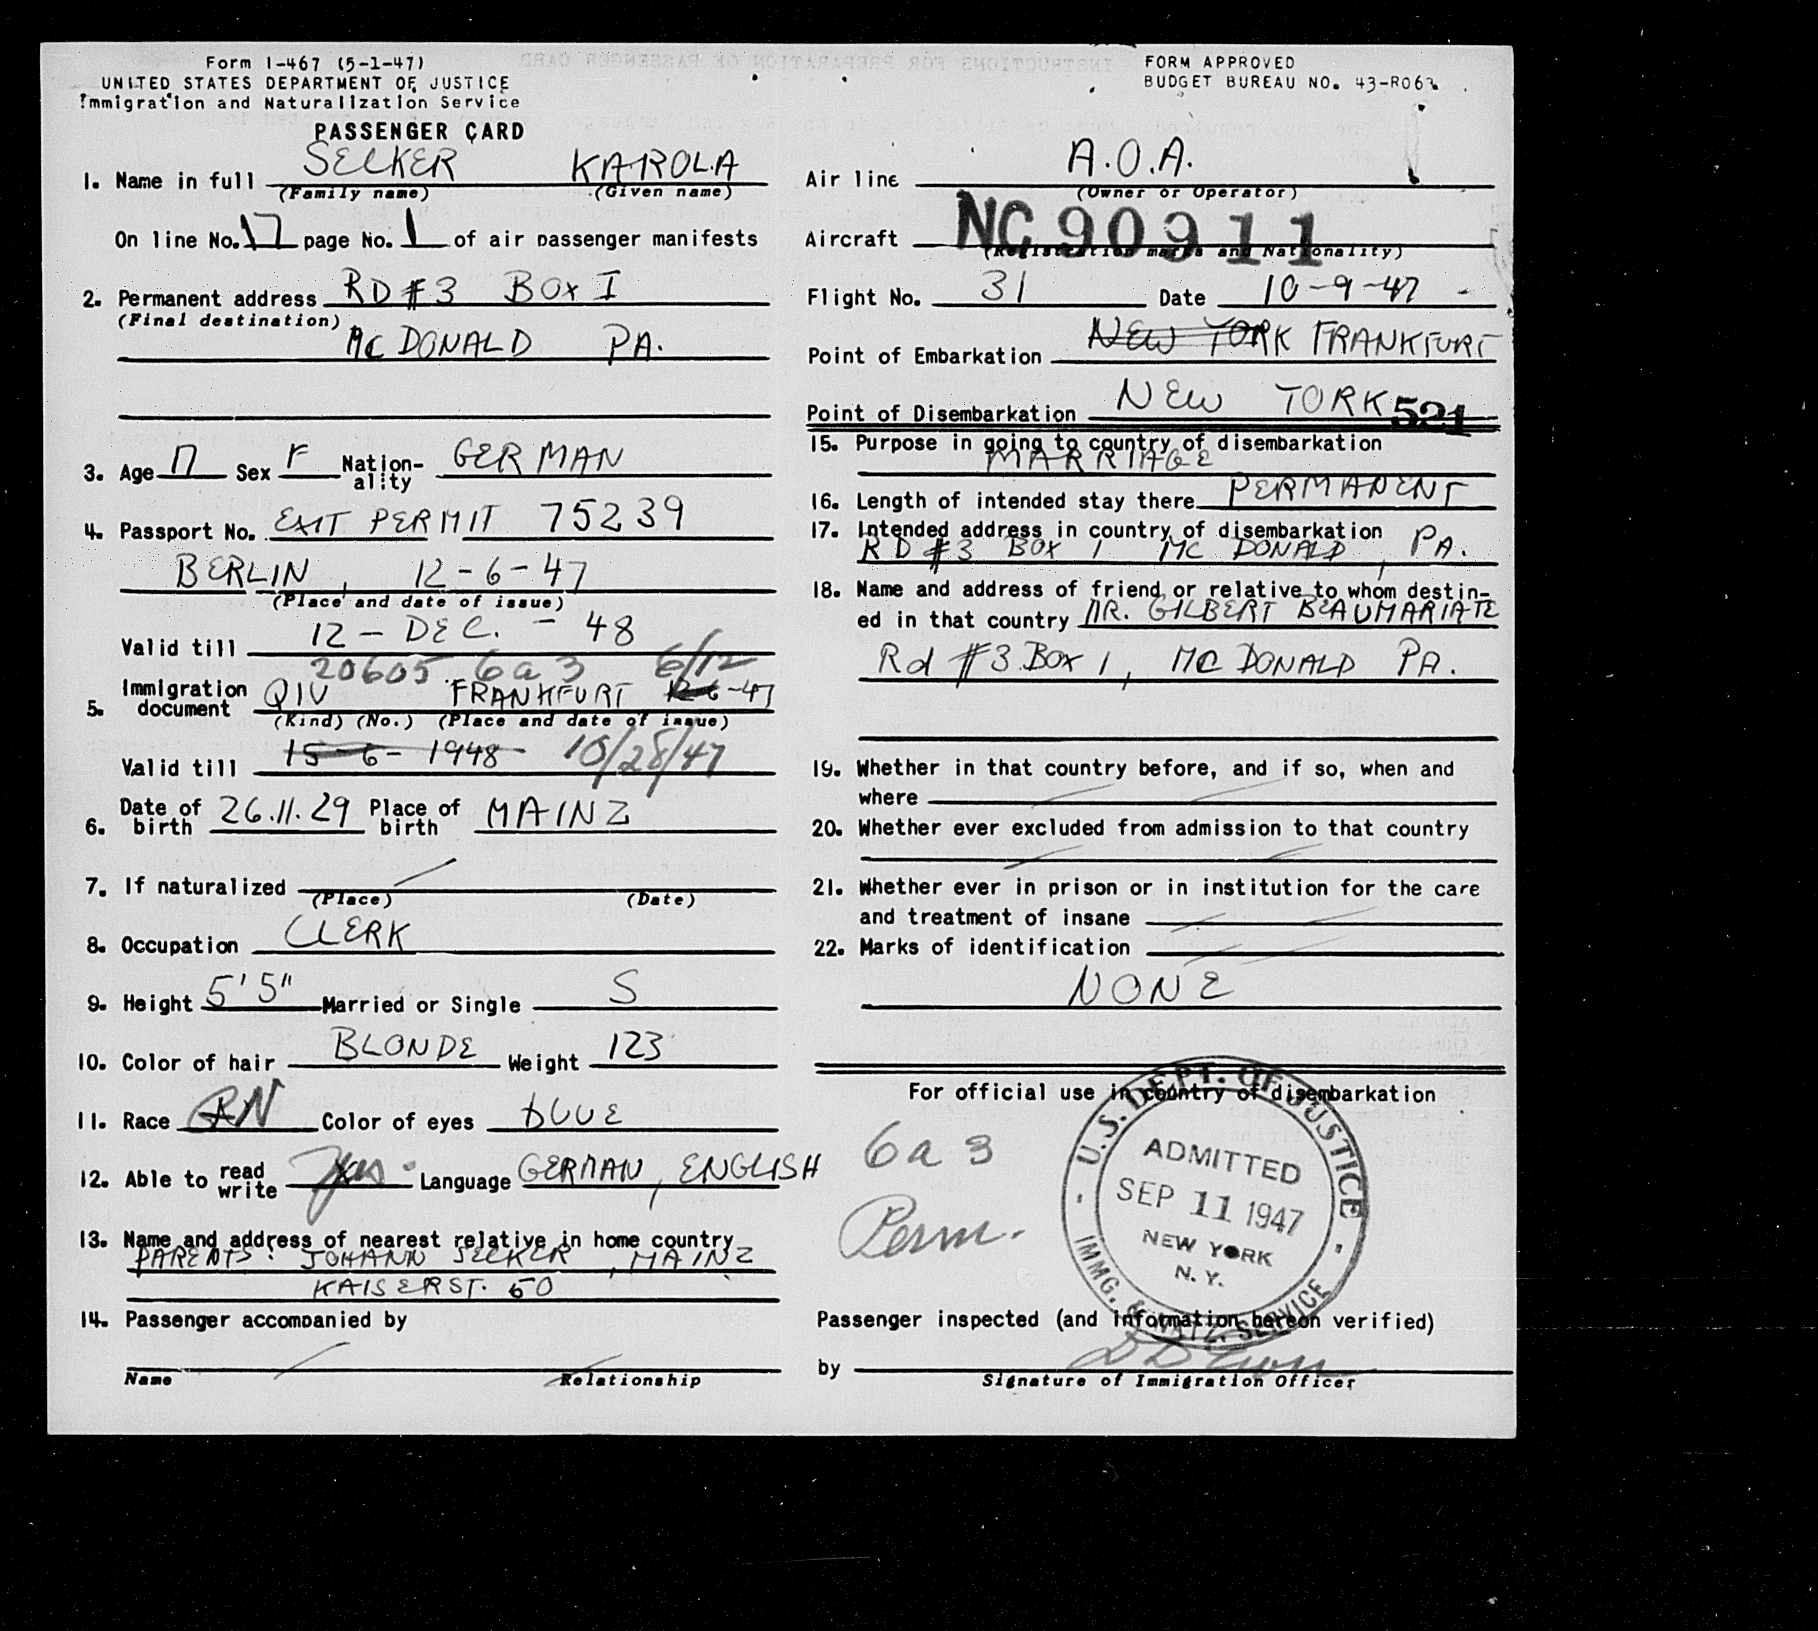 Form I-467 (5-1-47)
UNITED STATES DEPARTMENT OF JUSTICE
Immigration and Naturalization Service
PASSENGER CARD
1. Name in full SECKER KAROLA
(Family name) (Given name)
On line No. 17 page No. 1 of air passenger manifests
2. Permanent address RD #3 BOX I
(Final destination)
MC DONALD PA.
3. Age 17 Sex F Nation-ality GERMAN
4. Passport No. EXIT PERMIT 75239
BERLIN, 12-6-47
(Place and date of issue)
Valid till 12 - DEC. - 48
20605 6a3 6/12
5. Immigration document QIV FRANKFURT 12-6-47
(Kind) (No.) (Place and date of issue)
Valid till 15-6-1948- 10/28/47
6. Date of birth 26.11.29 Place of birth MAINZ
7. If naturalized
(Place) (Date)
8. Occupation CLERK
9. Height 5'5" Married or Single S
10. Color of hair BLONDE Weight 123
11. Race Color of eyes BLUE
12. Able to read write Yes Language GERMAN, ENGLISH
13. Name and address of nearest relative in home country
PARENTS: JOHANN SECKER, MAINZ
KAISERST. 50
14. Passenger accompanied by
Name Relationship
FORM APPROVED
BUDGET BUREAU NO. 43-R063.
Air line A.O.A.
(Owner or Operator)
Aircraft NC90911
(Registration marks and Nationality)
Flight No. 31 Date 10-9-47
Point of Embarkation NEW YORK FRANKFURT
Point of Disembarkation NEW YORK 521
15. Purpose in going to country of disembarkation
MARRIAGE
16. Length of intended stay there PERMANENT
17. Intended address in country of disembarkation
RD #3 BOX 1 MC DONALD, PA.
18. Name and address of friend or relative to whom destin-
ed in that country MR. GILBERT BEAUMARIATE
Rd #3 BOX 1, MC DONALD PA.
19. Whether in that country before, and if so, when and
where
20. Whether ever excluded from admission to that country
21. Whether ever in prison or in institution for the care
and treatment of insane
22. Marks of identification
NONE
For official use in country of disembarkation
6a3
Perm.
U.S. DEPT. OF JUSTICE
ADMITTED
SEP 11 1947
NEW YORK
N.Y.
IMMG. & NATZ. SERVICE
Passenger inspected (and information hereon verified)
by
Signature of Immigration Officer